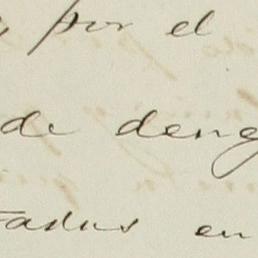 por el
de deng
tadus en